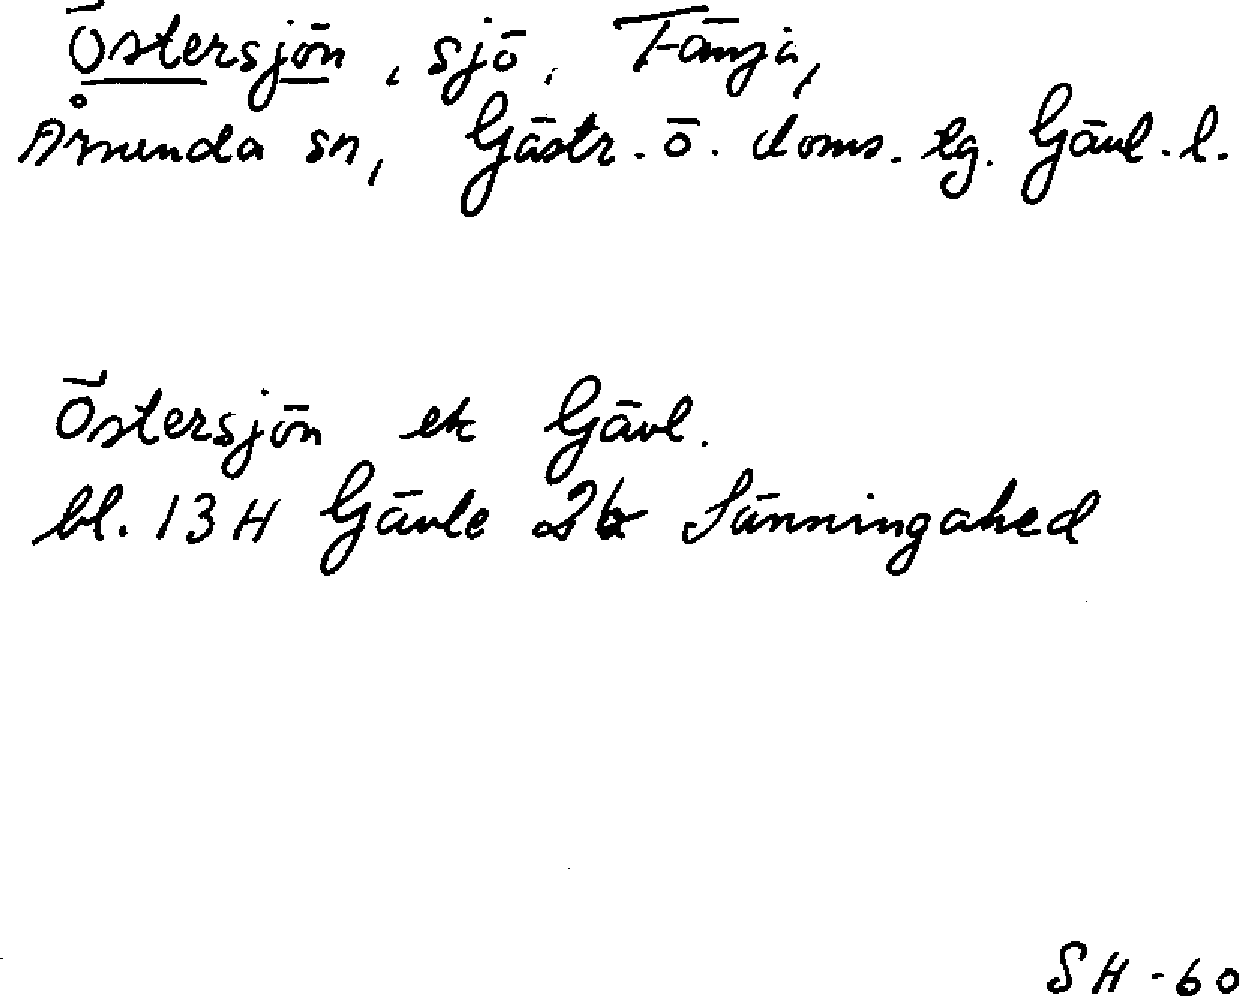 Östersjön, sjö, Fänja,
Årsunda sn, Gästr. ö. doms. lg. Gävl. l.
Östersjön ek Gävl.
bl. 13 H Gävle 2b Sänningahed
SH - 60